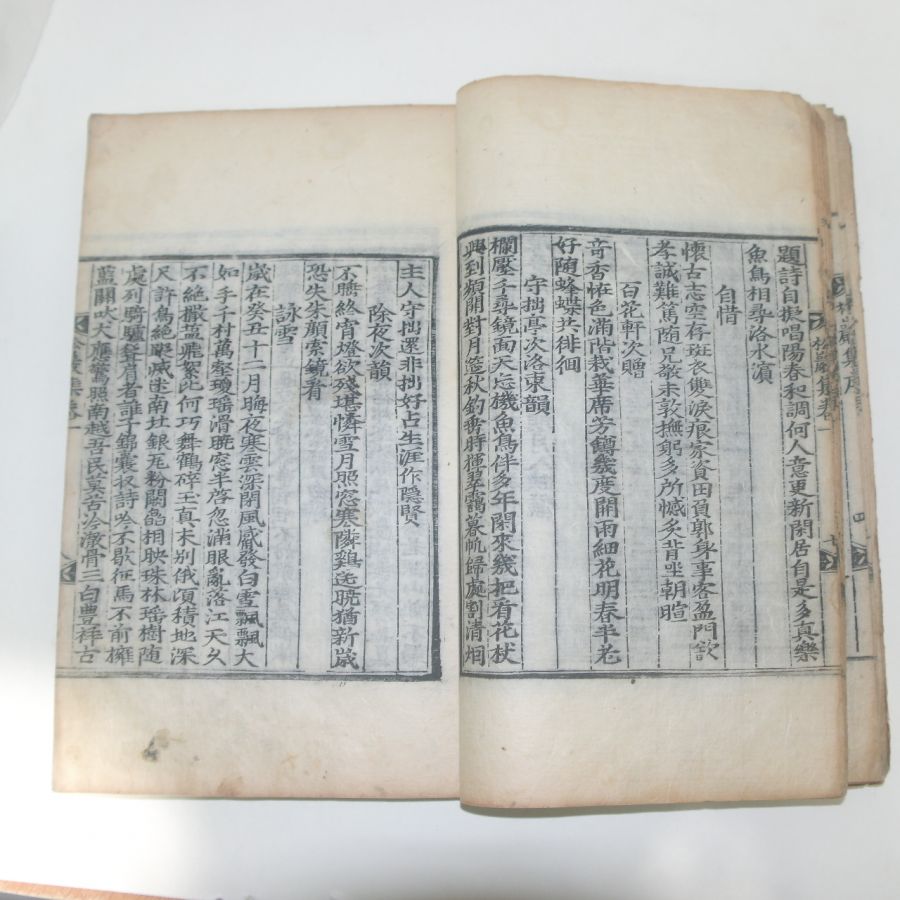 題詩自擬唱陽春和調何人意更新閑居自是多真樂
魚鳥相尋洛水濵
自惜
懷古志空存斑衣雙淚痕家資田負郭身事客盈門歆
孝誠難篤随兄敬未敦撫躬多所憾炙背坐朝暄
百花軒次贈
奇香恠色滿階栽華席芳鐏幾度開雨細花明春半老
好随蜂蝶共徘徊
守拙亭次洛東韻
欄壓千尋鏡面天忘機魚鳥伴多年閑來幾把看花杖
興到頻開對月筵秋釣番時揮翠靄暮帆歸處割清烟
主人守拙還非拙好占生涯作隐賢
除夜次韻
不禱終宵燈欲残堪憐雪月照窓寒隣鷄迭暁猶新歲
恐失朱顔索鏡看
詠雪
歲在癸丑十二月晦夜寒雲深閉風威發白雪飄飄大
如手千村萬壑瓊瑶滑暁窓半啓忽滿眼亂落江天久
不絶撒塩飛絮此何巧舞鶴碎玉真未别俄頃積地深
尺許鳥絶 滅迷南北銀瓦粉闕皛相映珠林瑶樹随
處列騎驢聳肩者誰子錦囊収詩吟不歇征馬不前擁
藍關吠犬應驚照南越吾民莫苦冷徹骨三白豊祥古